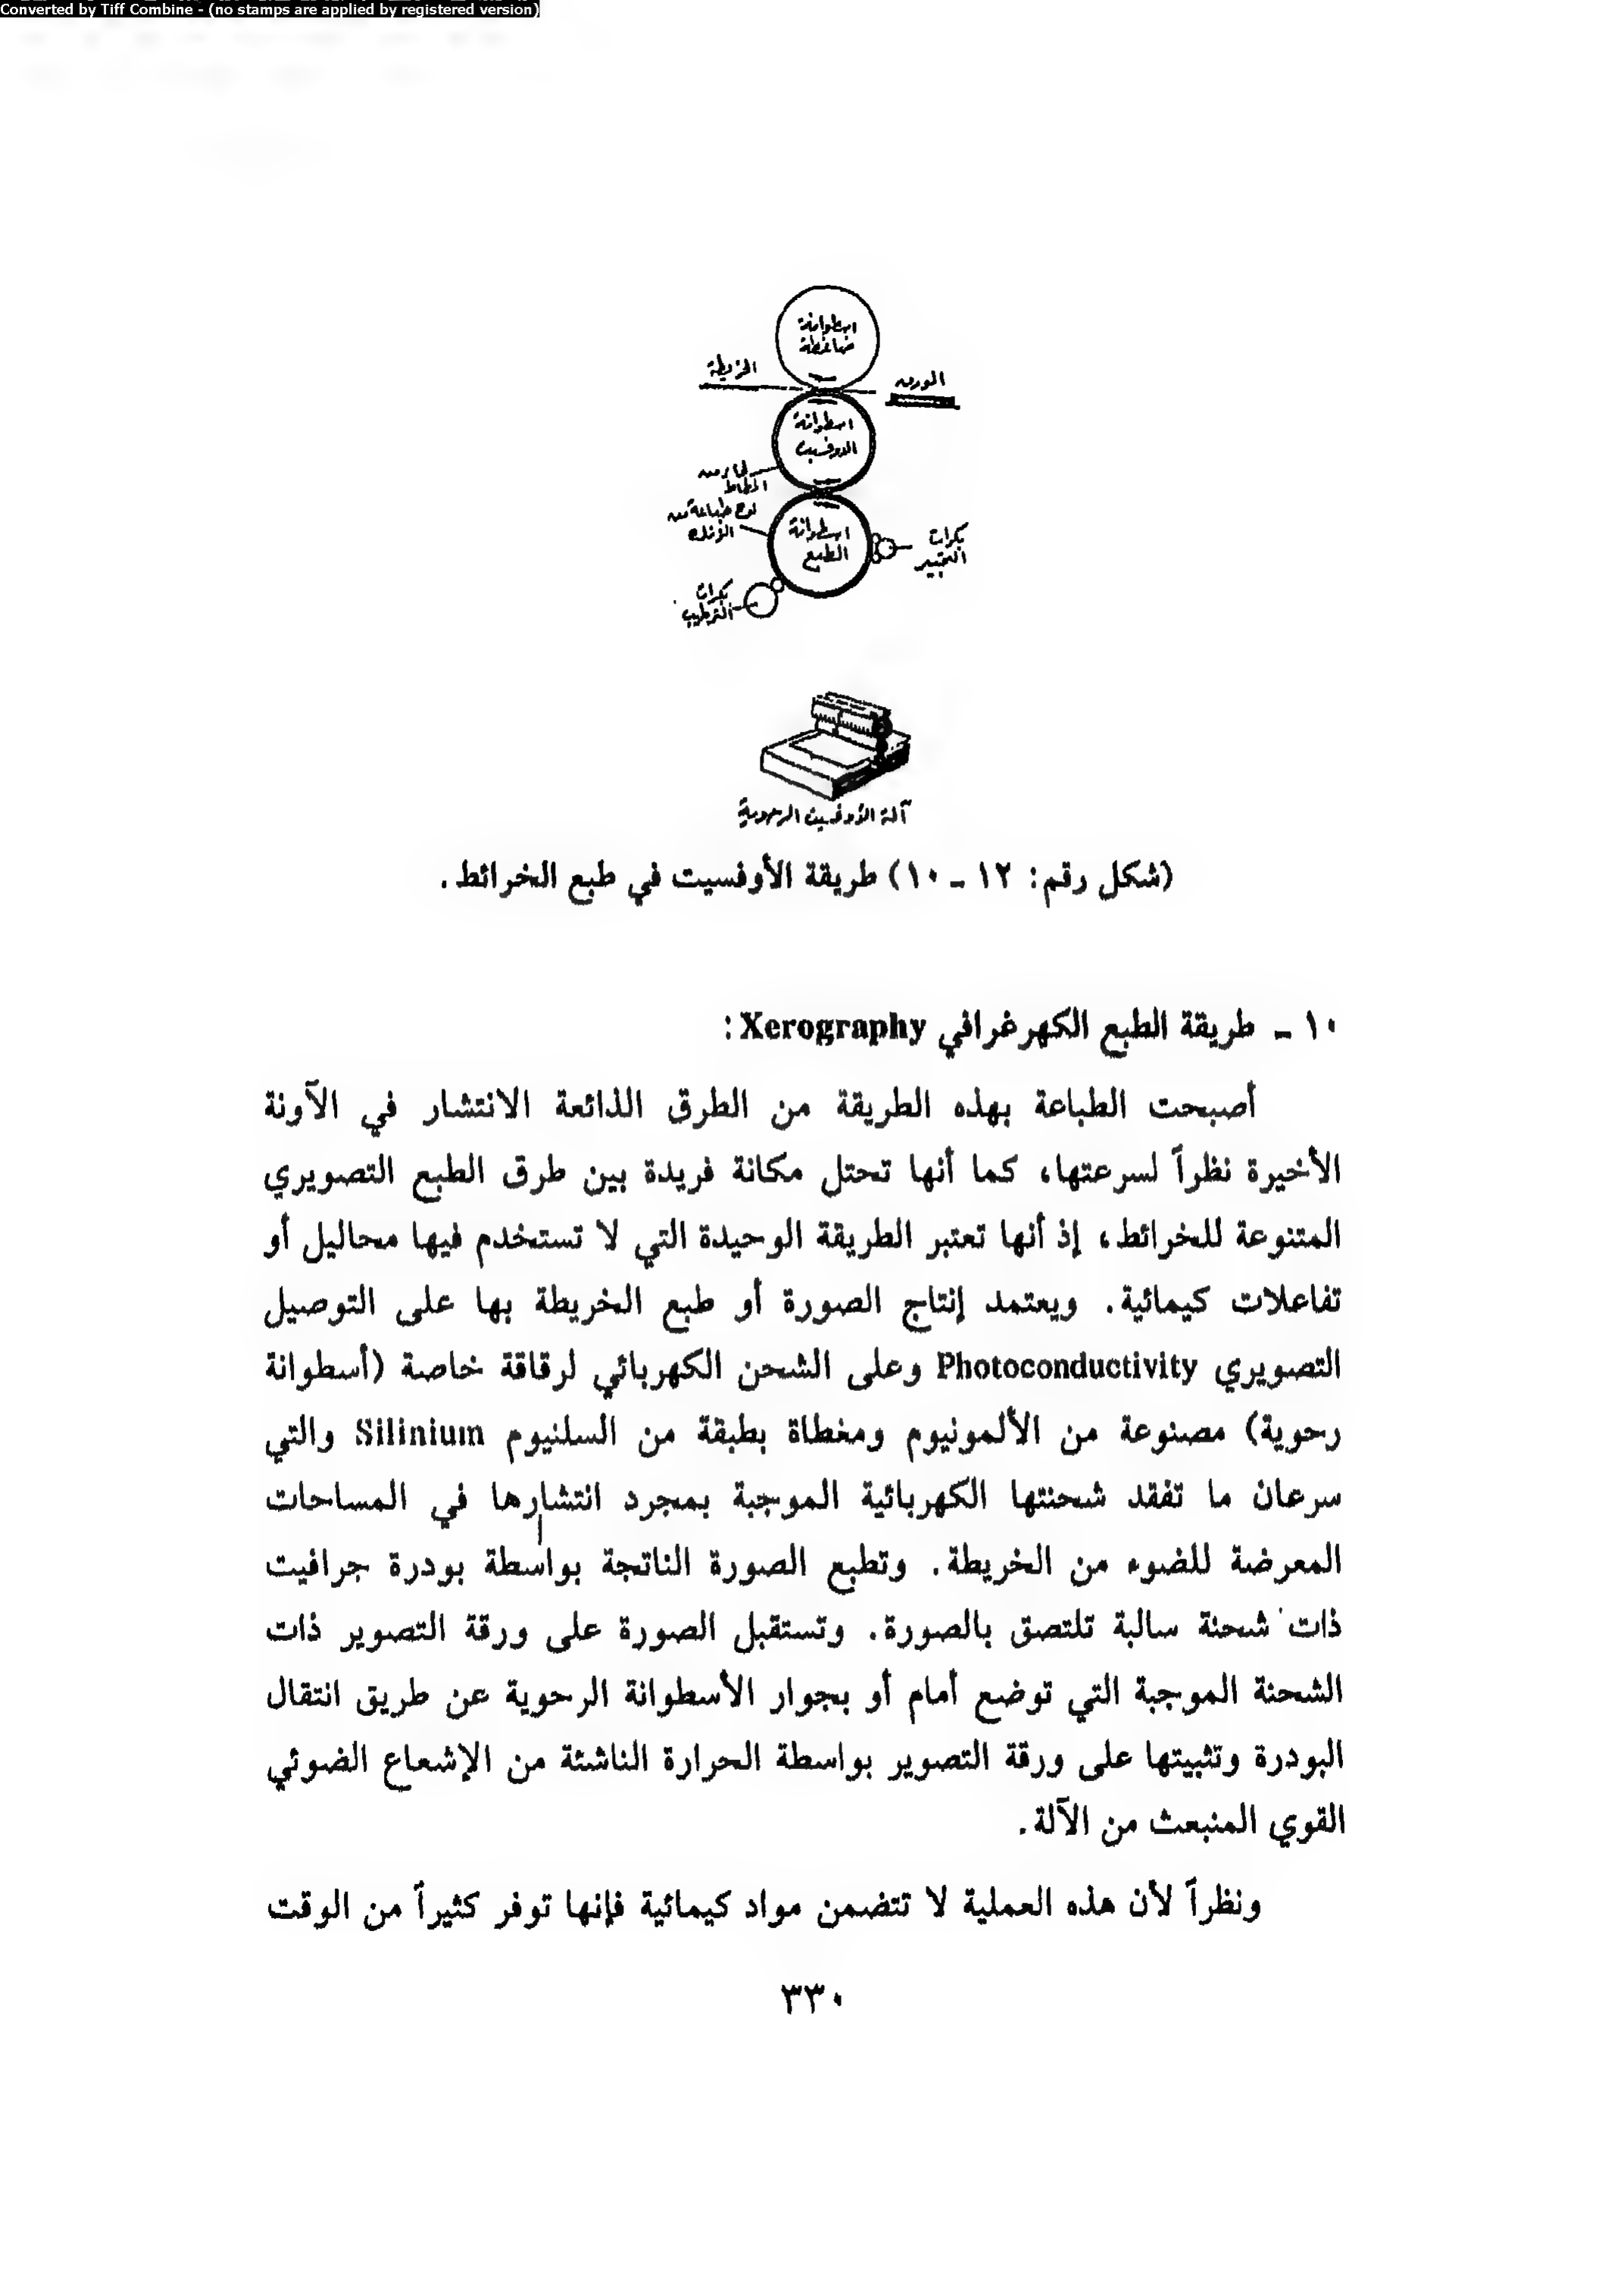 Converted by Tiff Combine - (no stamps are applied by registered version)
اسطوانة
ضاغطة
الخريطة
الورق
اسطوانة
الاوفسيت
المطاط
لوح طباعة من
الزنك
اسطوانة
الطبع
بكرات
التحبير
بكرات
الترطيب
آلة الأوفسيت الرحوية
(شكل رقم: ١٢ ـ ١٠) طريقة الأوفسيت في طبع الخرائط.
١٠ ـ طريقة الطبع الكهرغرافي Xerography:
أصبحت الطباعة بهذه الطريقة من الطرق الذائعة الانتشار في الآونة
الأخيرة نظراً لسرعتها، كما أنها تحتل مكانة فريدة بين طرق الطبع التصويري
المتنوعة للخرائط، إذ أنها تعتبر الطريقة الوحيدة التي لا تستخدم فيها محاليل أو
تفاعلات كيمائية. ويعتمد إنتاج الصورة أو طبع الخريطة بها على التوصيل
التصويري Photoconductivity وعلى الشحن الكهربائي لرقاقة خاصة (أسطوانة
رحوية) مصنوعة من الألمونيوم ومغطاة بطبقة من السلنيوم Silinium والتي
سرعان ما تفقد شحنتها الكهربائية الموجبة بمجرد انتشارها في المساحات
المعرضة للضوء من الخريطة. وتطبع الصورة الناتجة بواسطة بودرة جرافيت
ذات شحنة سالبة تلتصق بالصورة. وتستقبل الصورة على ورقة التصوير ذات
الشحنة الموجبة التي توضع أمام أو بجوار الأسطوانة الرحوية عن طريق انتقال
البودرة وتثبيتها على ورقة التصوير بواسطة الحرارة الناشئة من الإشعاع الضوئي
القوي المنبعث من الآلة.
ونظراً لأن هذه العملية لا تتضمن مواد كيمائية فإنها توفر كثيراً من الوقت
٣٣٠